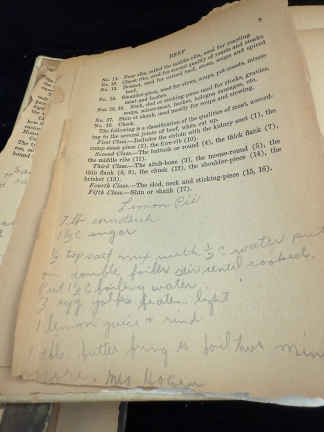 BEEF 9
No. 11. Fore ribs,
No. 12. Chuck ribs, used for second quality of roasts and steaks.
No. 13. Brisket, used for corned beef, stews, soups and spiced
beef.
No. 14. Shoulder-piece, used for stews, soups, pot-roasts, mince-
meat and hashes.
Nos. 15, 16. Neck, clod or sticking-piece used for stocks, gravies,
soups, mince-meat, hashes, bologna sausages, etc.
No. 17. Shin or shank, used mostly for soups and stewing.
No. 18. Cheek.
The following is a classification of the qualities of meat, accord-
ing to the several joints of beef, when cut up.
First Class.—Includes the sirloin with the kidney suet (1), the
rump-steak piece (2), the fore-rib (11).
Second Class.—The buttock or round (4), the thick flank (7),
the middle ribs (11).
Third Class.—The aitch-bone (3), the mouse-round (5), the
thin flank (8, 9), the chuck (12), the shoulder-piece (14), the
brisket (13).
Fourth Class.—The clod, neck and sticking-piece (15, 16).
Fifth Class.—Shin or shank (17).
Lemon Pie
cornstarch
1½ C sugar
½ tsp salt mix with ½ C water put
on double boiler stir until cooked.
Put 1½ C boiling water
3 egg yolks beaten light
1 lemon juice & rind
1 tbs butter bring to boil two min
Mrs